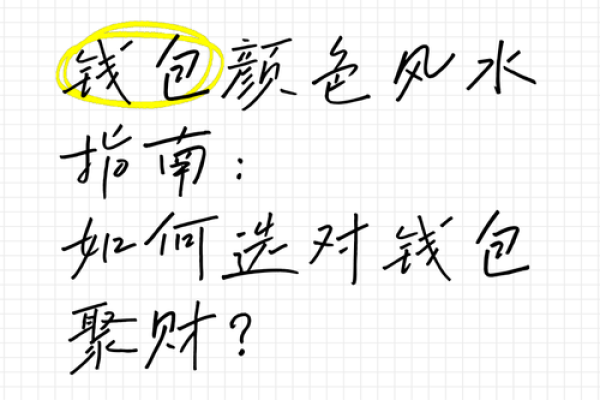 钱包颜色风水
指南:
如何选对钱包
聚财?